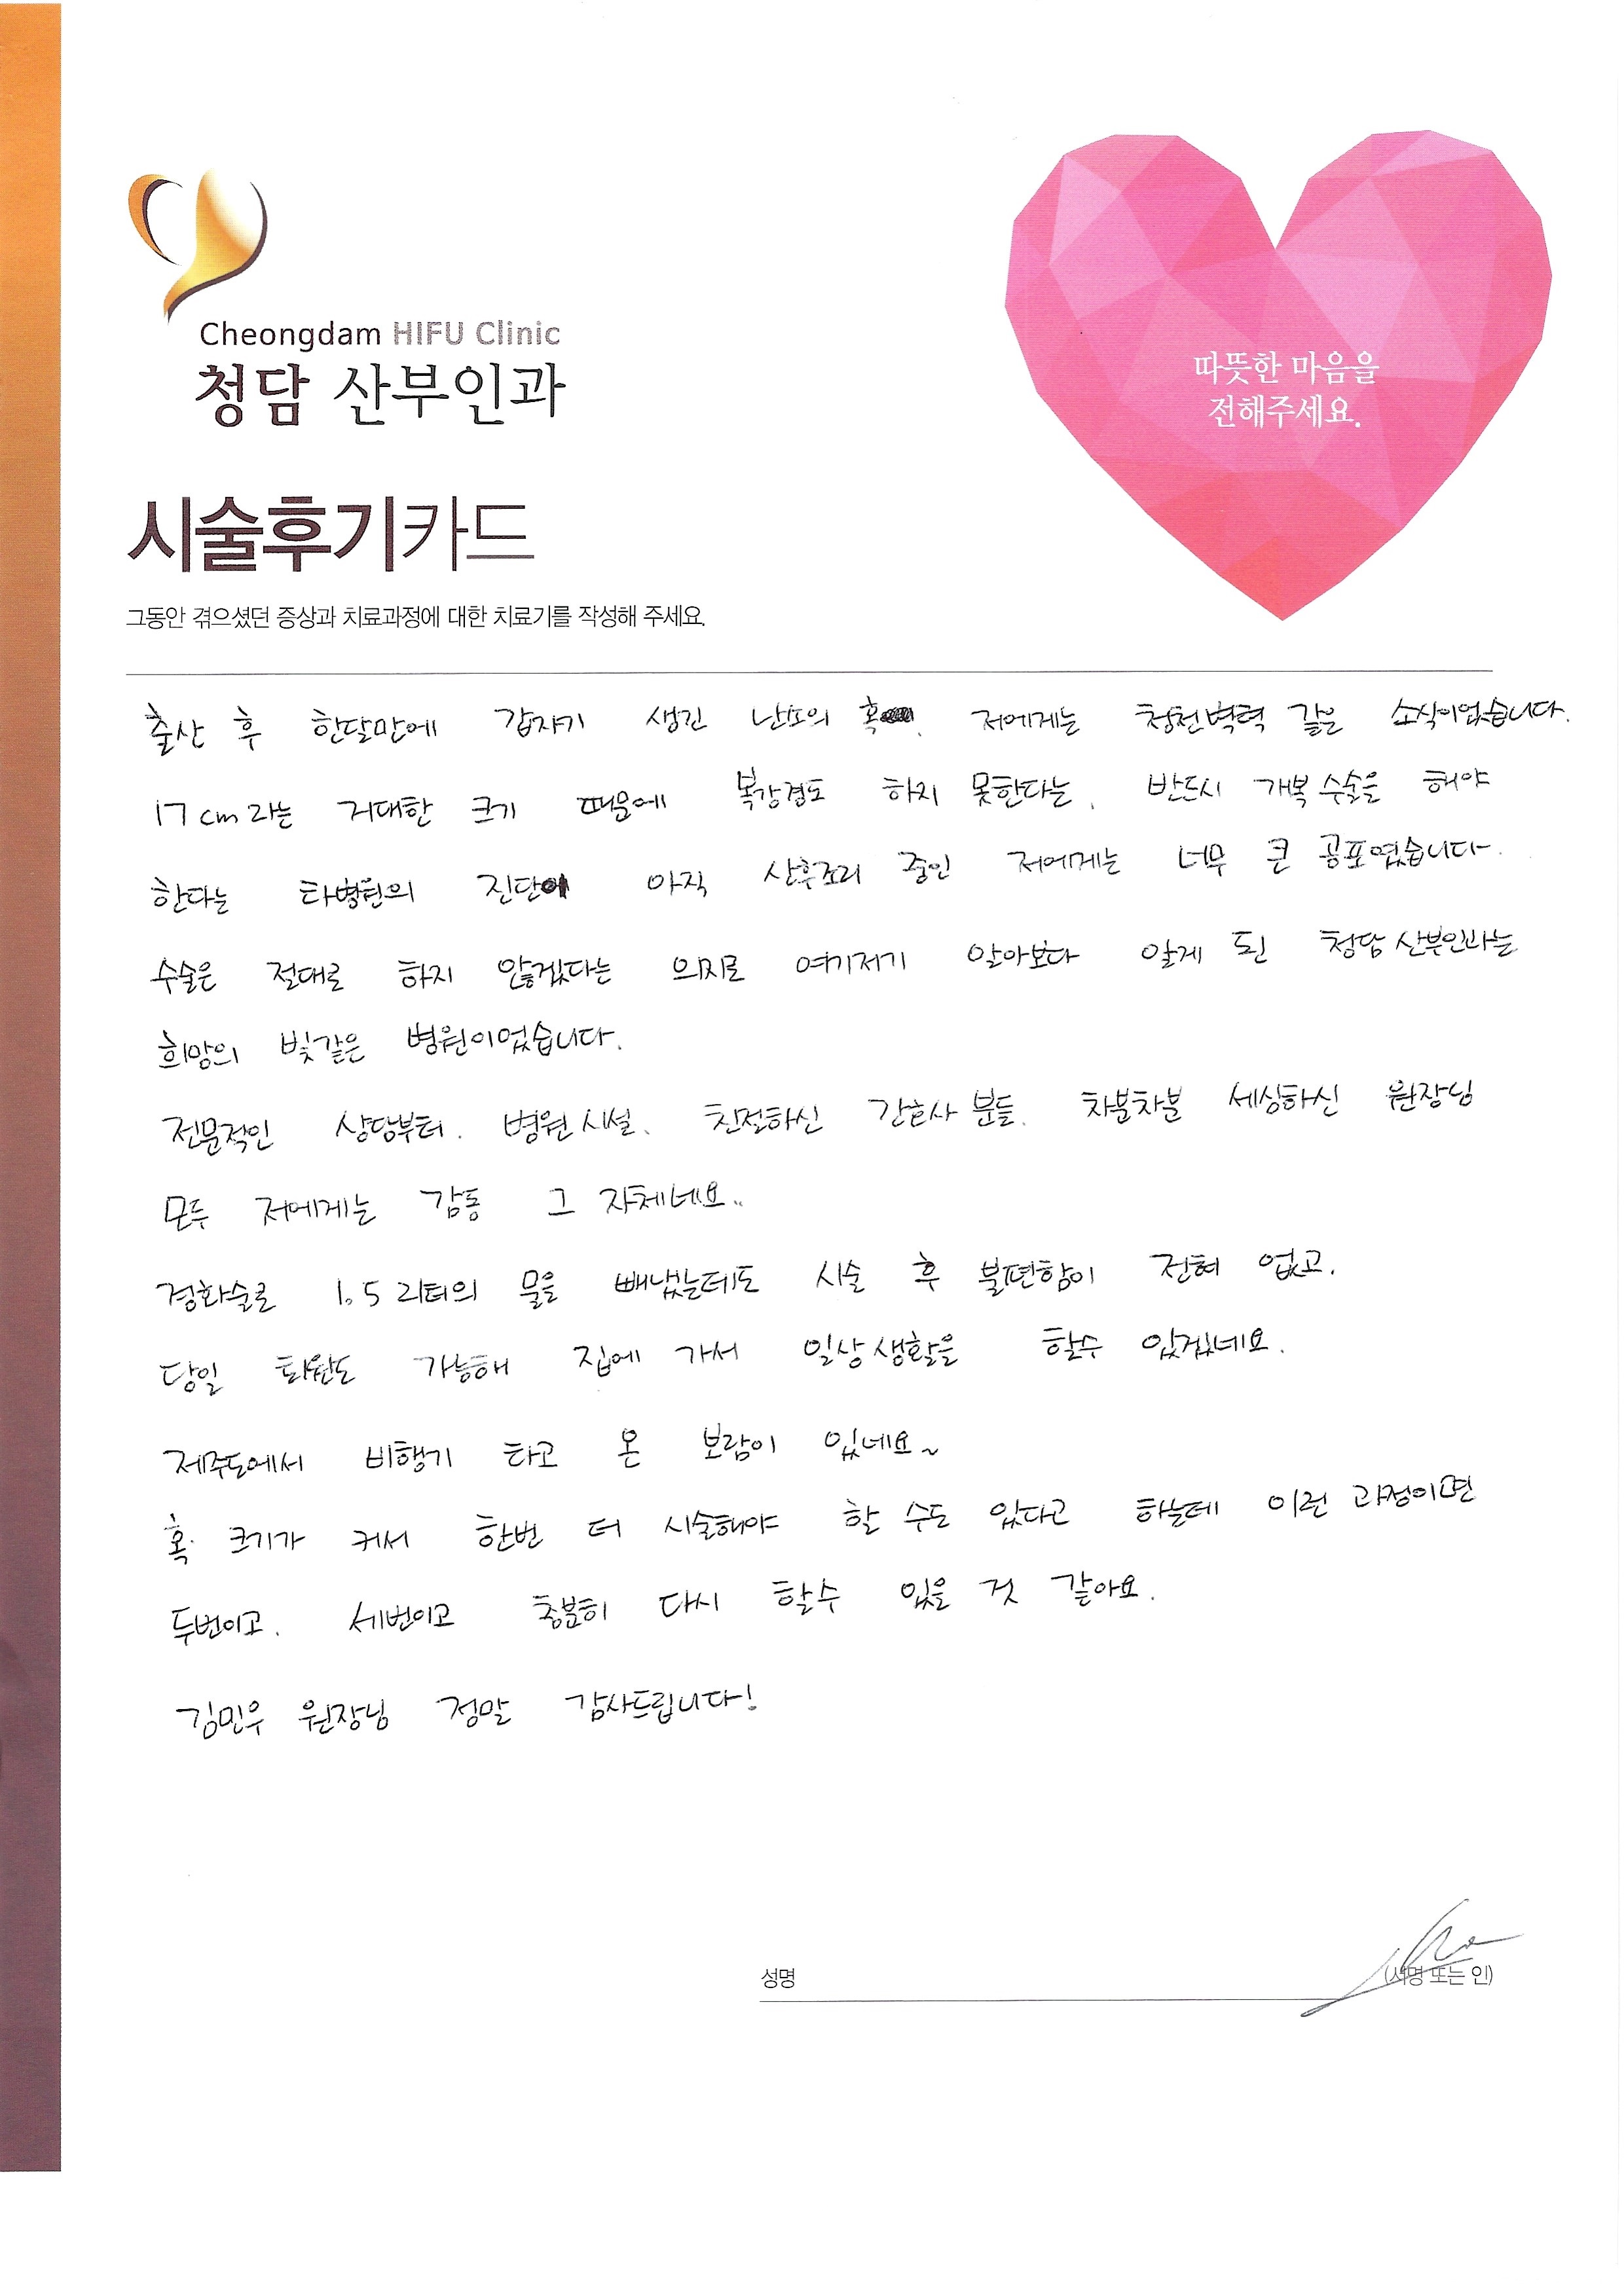 Cheongdam HIFU Clinic
청담 산부인과
따뜻한 마음을
전해주세요.
시술후기카드
그동안 겪으셨던 증상과 치료과정에 대한 치료기를 작성해 주세요.
출산 후 한달만에 갑자기 생긴 난소의 혹. 저에게는 청천벽력 같은 소식이었습니다.
17cm라는 거대한 크기 때문에 복강경도 하지 못한다는, 반드시 개복수술을 해야
한다는 타병원의 진단이 아직 산후조리 중인 저에게는 너무 큰 공포였습니다.
수술은 절대로 하지 않겠다는 의지로 여기저기 알아보다 알게 된 청담산부인과는
희망의 빛같은 병원이었습니다.
전문적인 상담부터. 병원시설. 친절하신 간호사분들. 차분차분 세심하신 원장님
모두 저에게는 감동 그 자체네요..
경화술로 1.5리터의 물을 빼냈는데도 시술 후 불편함이 전혀 없고.
당일 퇴원도 가능해 집에 가서 일상생활을 할수 있겠네요.
제주도에서 비행기 타고 온 보람이 있네요~
혹 크기가 커서 한번 더 시술해야 할 수도 있다고 하는데 이런 과정이면
두번이고. 세번이고 충분히 다시 할수 있을 것 같아요.
김민우 원장님 정말 감사드립니다!
성명 (서명 또는 인)